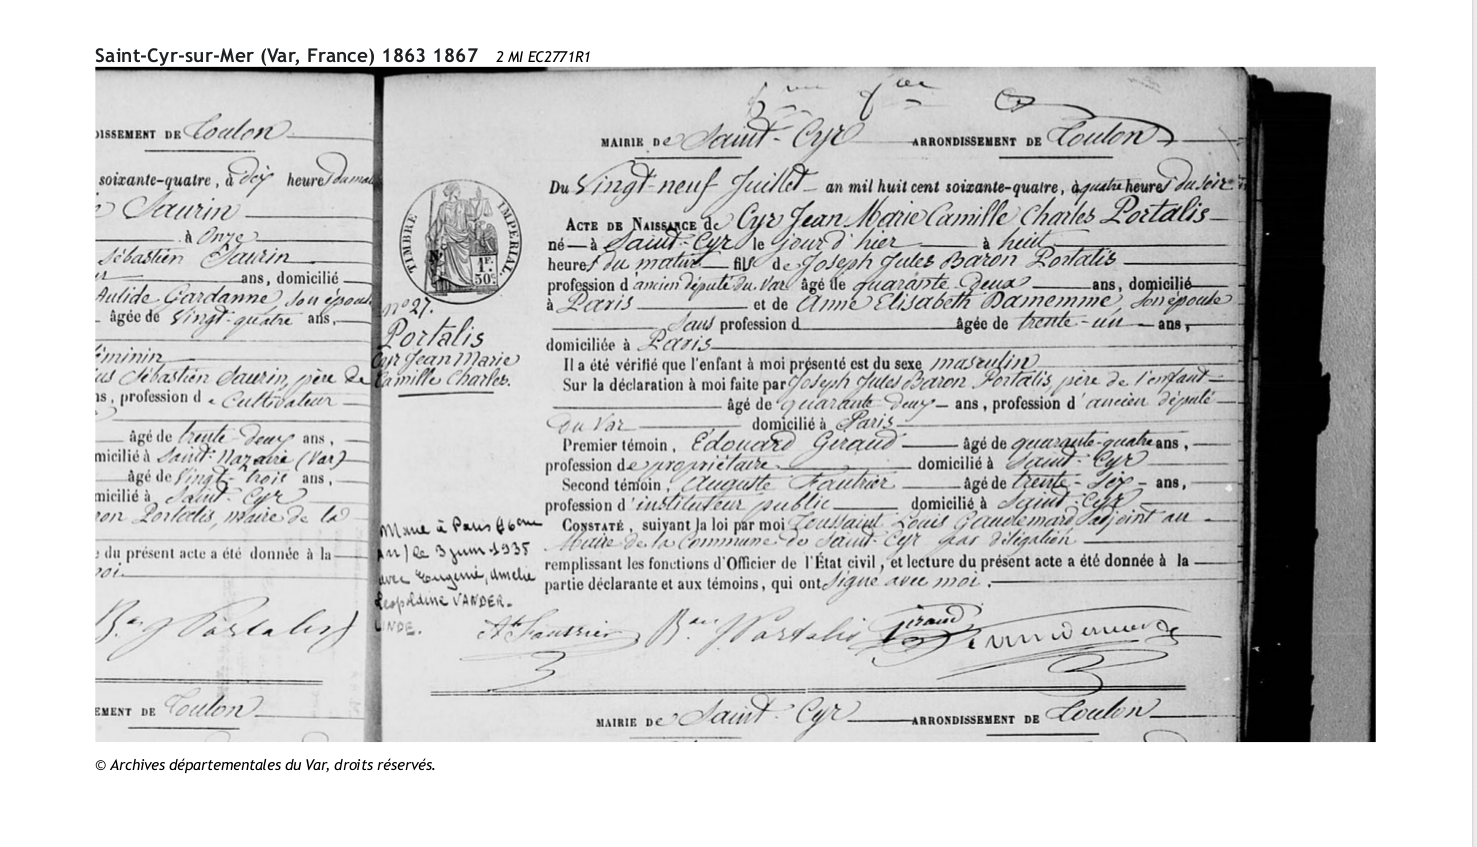 Saint-Cyr-sur-Mer (Var, France) 1863 1867 2 MI EC2771R1
DISSEMENT DE Toulon
soixante-quatre, à dix heures du mat
Saurin
à Onze
Sébastien Saurin
ans, domicilié
Gardanne, son épouse
âgée de Vingt-quatre ans,
féminin
Sébastien Saurin, père de
ns, profession de Cultivateur
âgé de trente deux ans,
micilié à Saint-Nazaire (Var)
âgé de Vingt-trois ans,
micilié à Saint-Cyr
ron Portalis, maire de la
e du présent acte a été donnée à la
moi.
Bon J Portalis
EMENT DE Toulon
TIMBRE IMPÉRIAL.
1F.
50c.
N° 27.
Portalis
Cyr Jean Marie
Camille Charles.
Marié à Paris (16eme
Arr) le 3 juin 1935
avec Eugénie, Amélie
Léopoldine VANDER-
LINDE.
MAIRIE DE Saint-Cyr ARRONDISSEMENT DE Toulon
Du Vingt-neuf Juillet an mil huit cent soixante-quatre, à quatre heures du soir
ACTE DE NAISSANCE de Cyr Jean Marie Camille Charles Portalis
né à Saint-Cyr le jour d'hier à huit
heures du matin fils de Joseph Jules Baron Portalis
profession d'ancien député du Var âgé de quarante deux ans, domicilié
à Paris et de Anne Elisabeth Damemme, son épouse
sans profession d âgée de trente-un ans,
domiciliée à Paris
Il a été vérifié que l'enfant à moi présenté est du sexe masculin
Sur la déclaration à moi faite par Joseph Jules Baron Portalis, père de l'enfant
âgé de quarante deux ans, profession d'ancien député
du Var domicilié à Paris
Premier témoin, Edouard Giraud âgé de quarante-quatre ans,
profession de propriétaire domicilié à Saint-Cyr
Second témoin, Auguste Fautrier âgé de trente-six ans,
profession d'instituteur public domicilié à Saint-Cyr
CONSTATÉ, suivant la loi par moi Toussaint Louis Gaudemard adjoint au
Maire de la Commune de Saint-Cyr par délégation
remplissant les fonctions d'Officier de l'État civil, et lecture du présent acte a été donnée à la
partie déclarante et aux témoins, qui ont signé avec moi.
Ate Fautrier Bon J Portalis Giraud Gaudemard
MAIRIE DE Saint-Cyr ARRONDISSEMENT DE Toulon
© Archives départementales du Var, droits réservés.